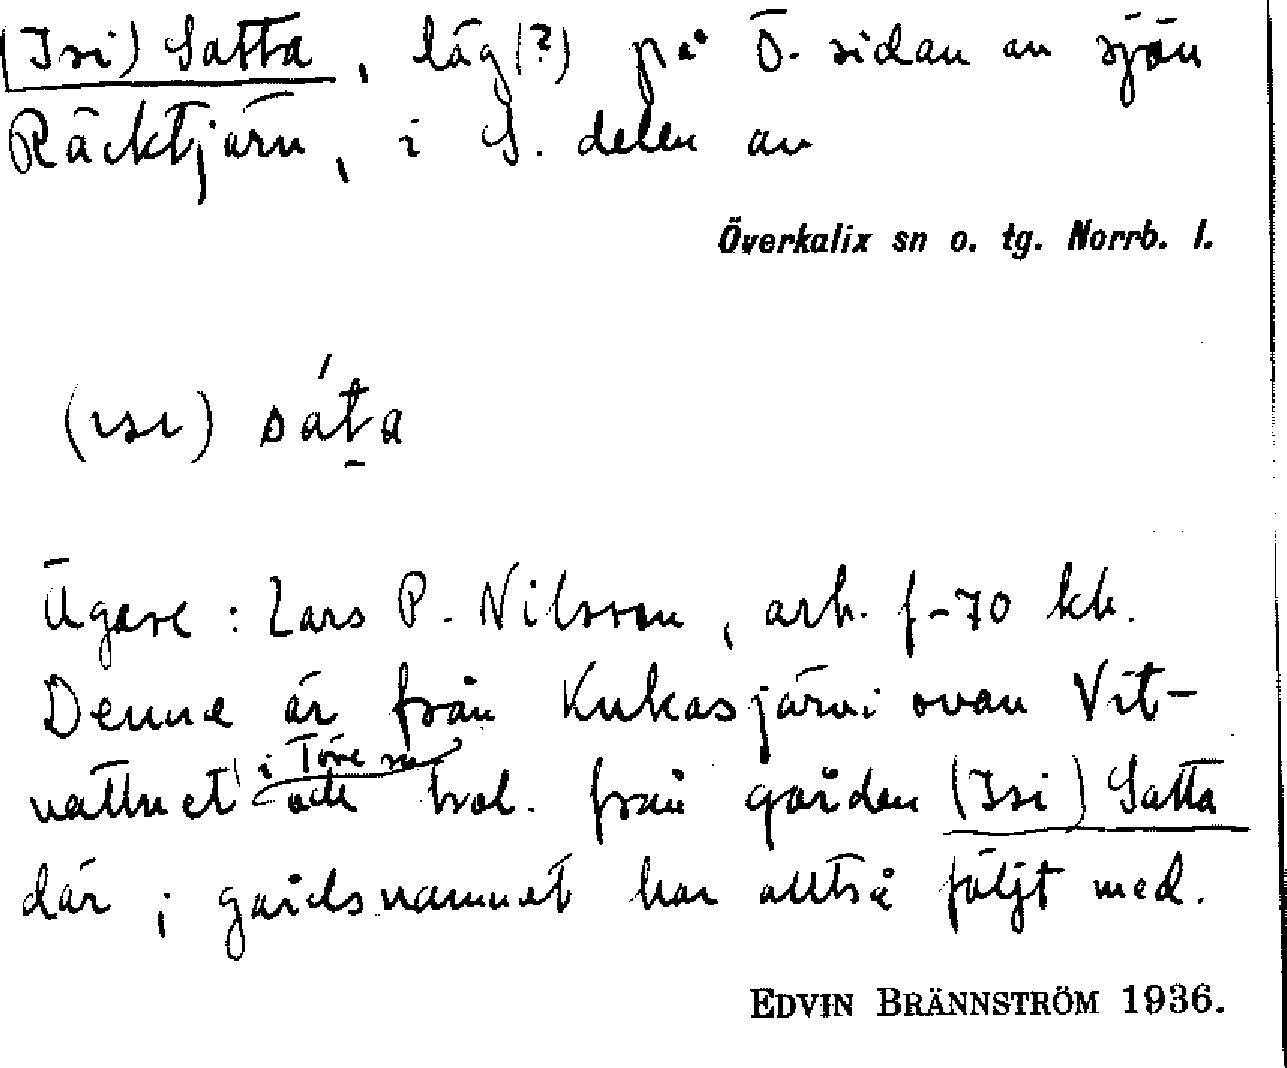 (Isi) Satta, läg(?) på Ö. sidan av sjön
Räcktjärn, i S. delen av
Överkalix sn o. tg. Norrb. l.
(ısı) sáta
Ägare: Lars P. Nilsson, arb. f-70 kb.
Denne är från Kukasjärvi ovan Vit-
vattnet i Töre sn och trol. från gården (Isi) Satta
där; gårdsnamnet har alltså följt med.
EDVIN BRÄNNSTRÖM 1936.